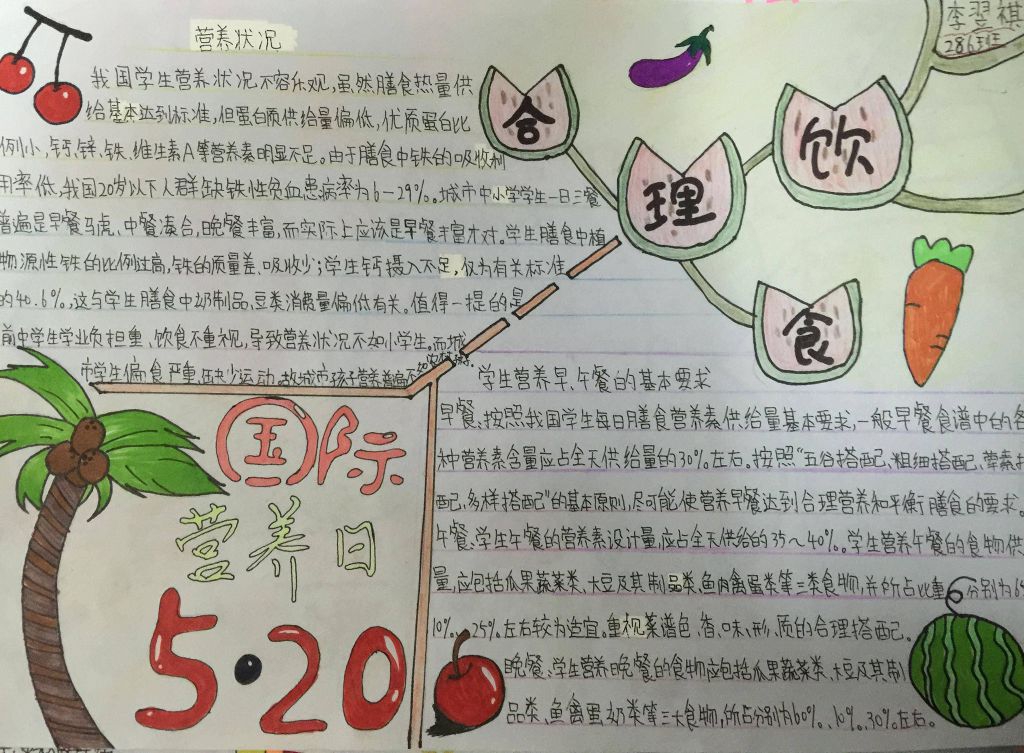 营养状况
我国学生营养状况不容乐观,虽然膳食热量供
给基本达到标准,但蛋白质供给量偏低,优质蛋白比
例小,钙、锌、铁、维生素A等营养素明显不足。由于膳食中铁的吸收利
用率低,我国20岁以下人群缺铁性贫血患病率为6-29%。城市中小学学生一日三餐
普遍是早餐马虎、中餐凑合,晚餐丰富,而实际上应该是早餐丰富才对。学生膳食中植
物源性铁的比例过高,铁的质量差、吸收少;学生钙摄入不足,仅为有关标准
的40.6%,这与学生膳食中奶制品,豆类消费量偏低有关。值得一提的是
前中学生学业负担重、饮食不重视,导致营养状况不如小学生。而城
市学生偏食严重,缺少运动,故城市孩子营养普遍不
合理饮食
李翌祺
286班
国际
营养日
5·20
学生营养早、午餐的基本要求
早餐、按照我国学生每日膳食营养素供给量基本要求,一般早餐食谱中的各
种营养素含量应占全天供给量的30%左右。按照"五谷搭配、粗细搭配、荤素搭
配,多样搭配"的基本原则,尽可能使营养早餐达到合理营养和平衡膳食的要求。
午餐、学生午餐的营养素设计量,应占全天供给的35~40%。学生营养午餐的食物供
量,应包括瓜果蔬菜类、大豆及其制品类、鱼肉禽蛋类等三类食物,并所占比重 分别为6
10%、25%左右较为适宜。重视菜谱色、香、味、形、质的合理搭配。
晚餐、学生营养晚餐的食物应包括瓜果蔬菜类、大豆及其制
品类、鱼禽蛋奶类等三大食物,所占分别为60%、10%、30%左右。